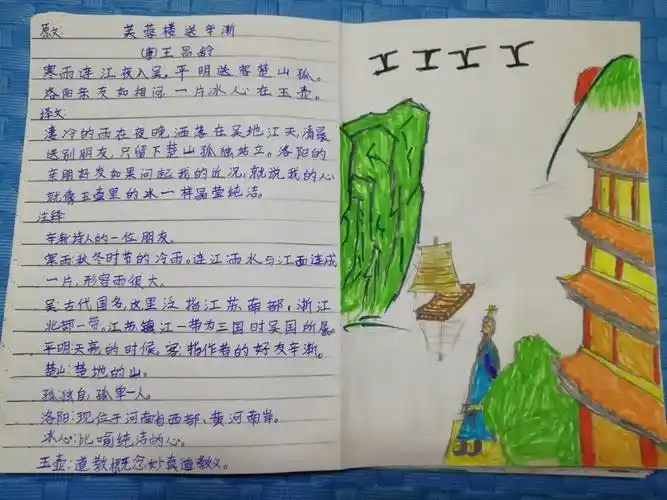 原文: 芙蓉楼送辛渐
(唐)王昌龄
寒雨连江夜入吴,平明送客楚山孤。
洛阳亲友如相问一片冰心在玉壶。
译文:
凄冷的雨在夜晚洒落在吴地江天,清晨
送别朋友,只留下楚山孤独站立。洛阳的
亲朋好友如果问起我的近况,就说我的心
就像玉壶里的冰一样晶莹纯洁。
注释
辛渐:诗人的一位朋友。
寒雨:秋冬时节的冷雨。连江:雨水与江面连成
一片,形容雨很大。
吴:古代国名,这里泛指江苏南部,浙江
北部一带。江苏镇江一带为三国时吴国所属。
平明:天亮的时候。客:指作者的好友辛渐。
楚山:楚地的山。
孤:独自,孤单一人。
洛阳:现位于河南省西部、黄河南岸。
冰心:比喻纯洁的心。
玉壶:道教概念妙真道教义。